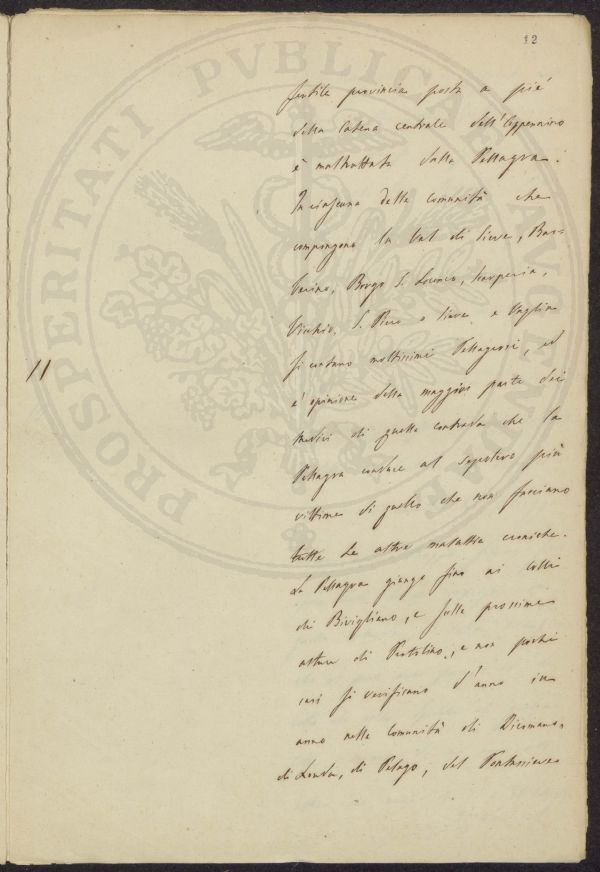 12
fertile provincia posta a piè
della Catena centrale dell'Appennino
è maltrattata dalla Pellagra.
In ciascuna delle Comunità che
compongono la Val di Sieve, Bar-
berino, Borgo S. Lorenzo, Scarperia,
Vicchio, S. Piero a Sieve e Vaglia
si contano moltissimi Pellagrosi, ed
è opinione della maggior parte dei
Medici di quella contrada che la
Pellagra conduce al sepolcro più
vittime di quello che non facciano
tutte le altre malattie croniche.
La Pellagra giunge fino ai colli
di Bivigliano, e sulle prossime
alture di Pratolino, e non pochi
casi si verificano d'anno in
anno nelle Comunità di Dicomano,
di Londa, di Pelago, del Pontassieve
11
PROSPERITATI PVBLICAE AVGENDAE